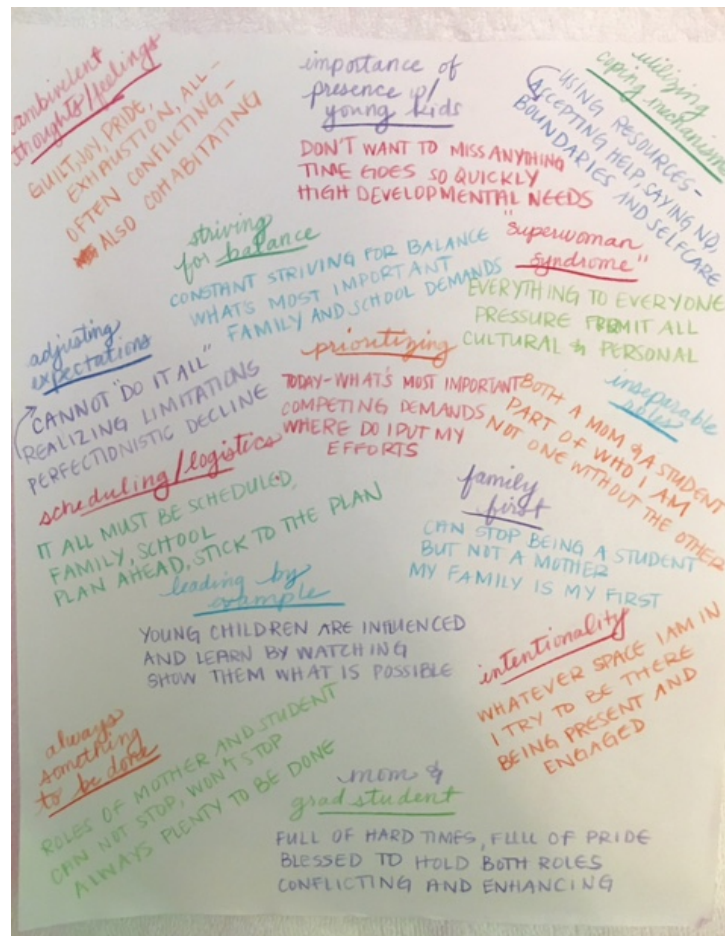 ambivelent
thoughts/feelings
GUILT, JOY, PRIDE,
EXHAUSTION, ALL-
OFTEN CONFLICTING-
ALSO COHABITATING
importance of
presence w/
young kids
DON'T WANT TO MISS ANYTHING
TIME GOES SO QUICKLY
HIGH DEVELOPMENTAL NEEDS
utilizing
coping mechanisms
USING RESOURCES-
ACCEPTING HELP, SAYING NO,
BOUNDARIES AND SELFCARE
striving
for balance
CONSTANT STRIVING FOR BALANCE
WHAT'S MOST IMPORTANT
FAMILY AND SCHOOL DEMANDS
"superwoman
syndrome"
EVERYTHING TO EVERYONE
PRESSURE FROM IT ALL
CULTURAL & PERSONAL
adjusting
expectations
CANNOT "DO IT ALL"
REALIZING LIMITATIONS
PERFECTIONISTIC DECLINE
prioritizing
TODAY-WHAT'S MOST IMPORTANT
COMPETING DEMANDS
WHERE DO I PUT MY
EFFORTS
inseparable
roles
BOTH A MOM & A STUDENT
PART OF WHO I AM
NOT ONE WITHOUT THE OTHER
scheduling/logistics
IT ALL MUST BE SCHEDULED,
FAMILY, SCHOOL
PLAN AHEAD, STICK TO THE PLAN
family
first
CAN STOP BEING A STUDENT
BUT NOT A MOTHER
MY FAMILY IS MY FIRST
leading by
example
YOUNG CHILDREN ARE INFLUENCED
AND LEARN BY WATCHING
SHOW THEM WHAT IS POSSIBLE
intentionality
WHATEVER SPACE I AM IN
I TRY TO BE THERE
BEING PRESENT AND
ENGAGED
always
something
to be done
ROLES OF MOTHER AND STUDENT
CAN NOT STOP, WON'T STOP
ALWAYS PLENTY TO BE DONE
mom &
grad student
FULL OF HARD TIMES, FULL OF PRIDE
BLESSED TO HOLD BOTH ROLES
CONFLICTING AND ENHANCING